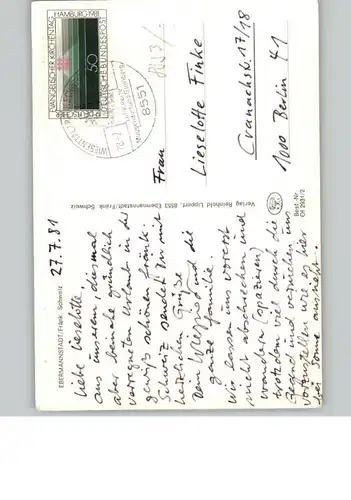 EBERMANNSTADT/Fränk. Schweiz
27.7.81
Liebe Lieselotte,
aus unserem, diesmal
aber beinahe gründlich
verregneten Urlaub in der
gewiß schönen Fränk.
Schweiz sendet Dir mit
herzlichen Grüßen
Dein Wiegand und die
ganze Familie.
Wir lassen uns vorerst
nicht abschrecken und
wandern (spazieren)
trotzdem viel durch die
Gegend und versuchen uns
vorzustellen wie es hier
bei Sonne aussieht.
Verlag Reinhold Lippert, 8553 Ebermannstadt/Fränk. Schweiz
Best.-Nr.
EVANGELISCHER KIRCHENTAG
HAMBURG 1981
50
DEUTSCHE BUNDESPOST
8551
Frau
Lieselotte Finke
Cranachstr. 17/18
1000 Berlin 41